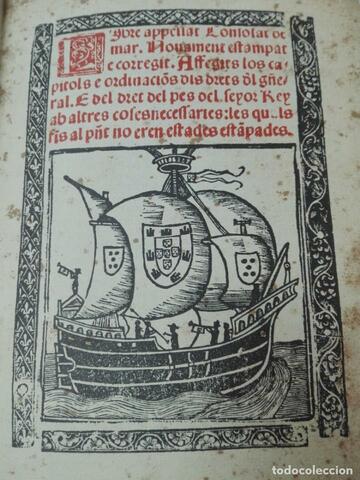 Libre appellat Consolat de
mar. Nouament estampat
e corregit. Affegits los ca-
pitols e ordinaciõs dels drets dl gñe-
ral. E del dret del pes del senyor Rey
ab altres coses necessaries: les quals
fis al pũt no eren estades estãpades.
todocoleccion